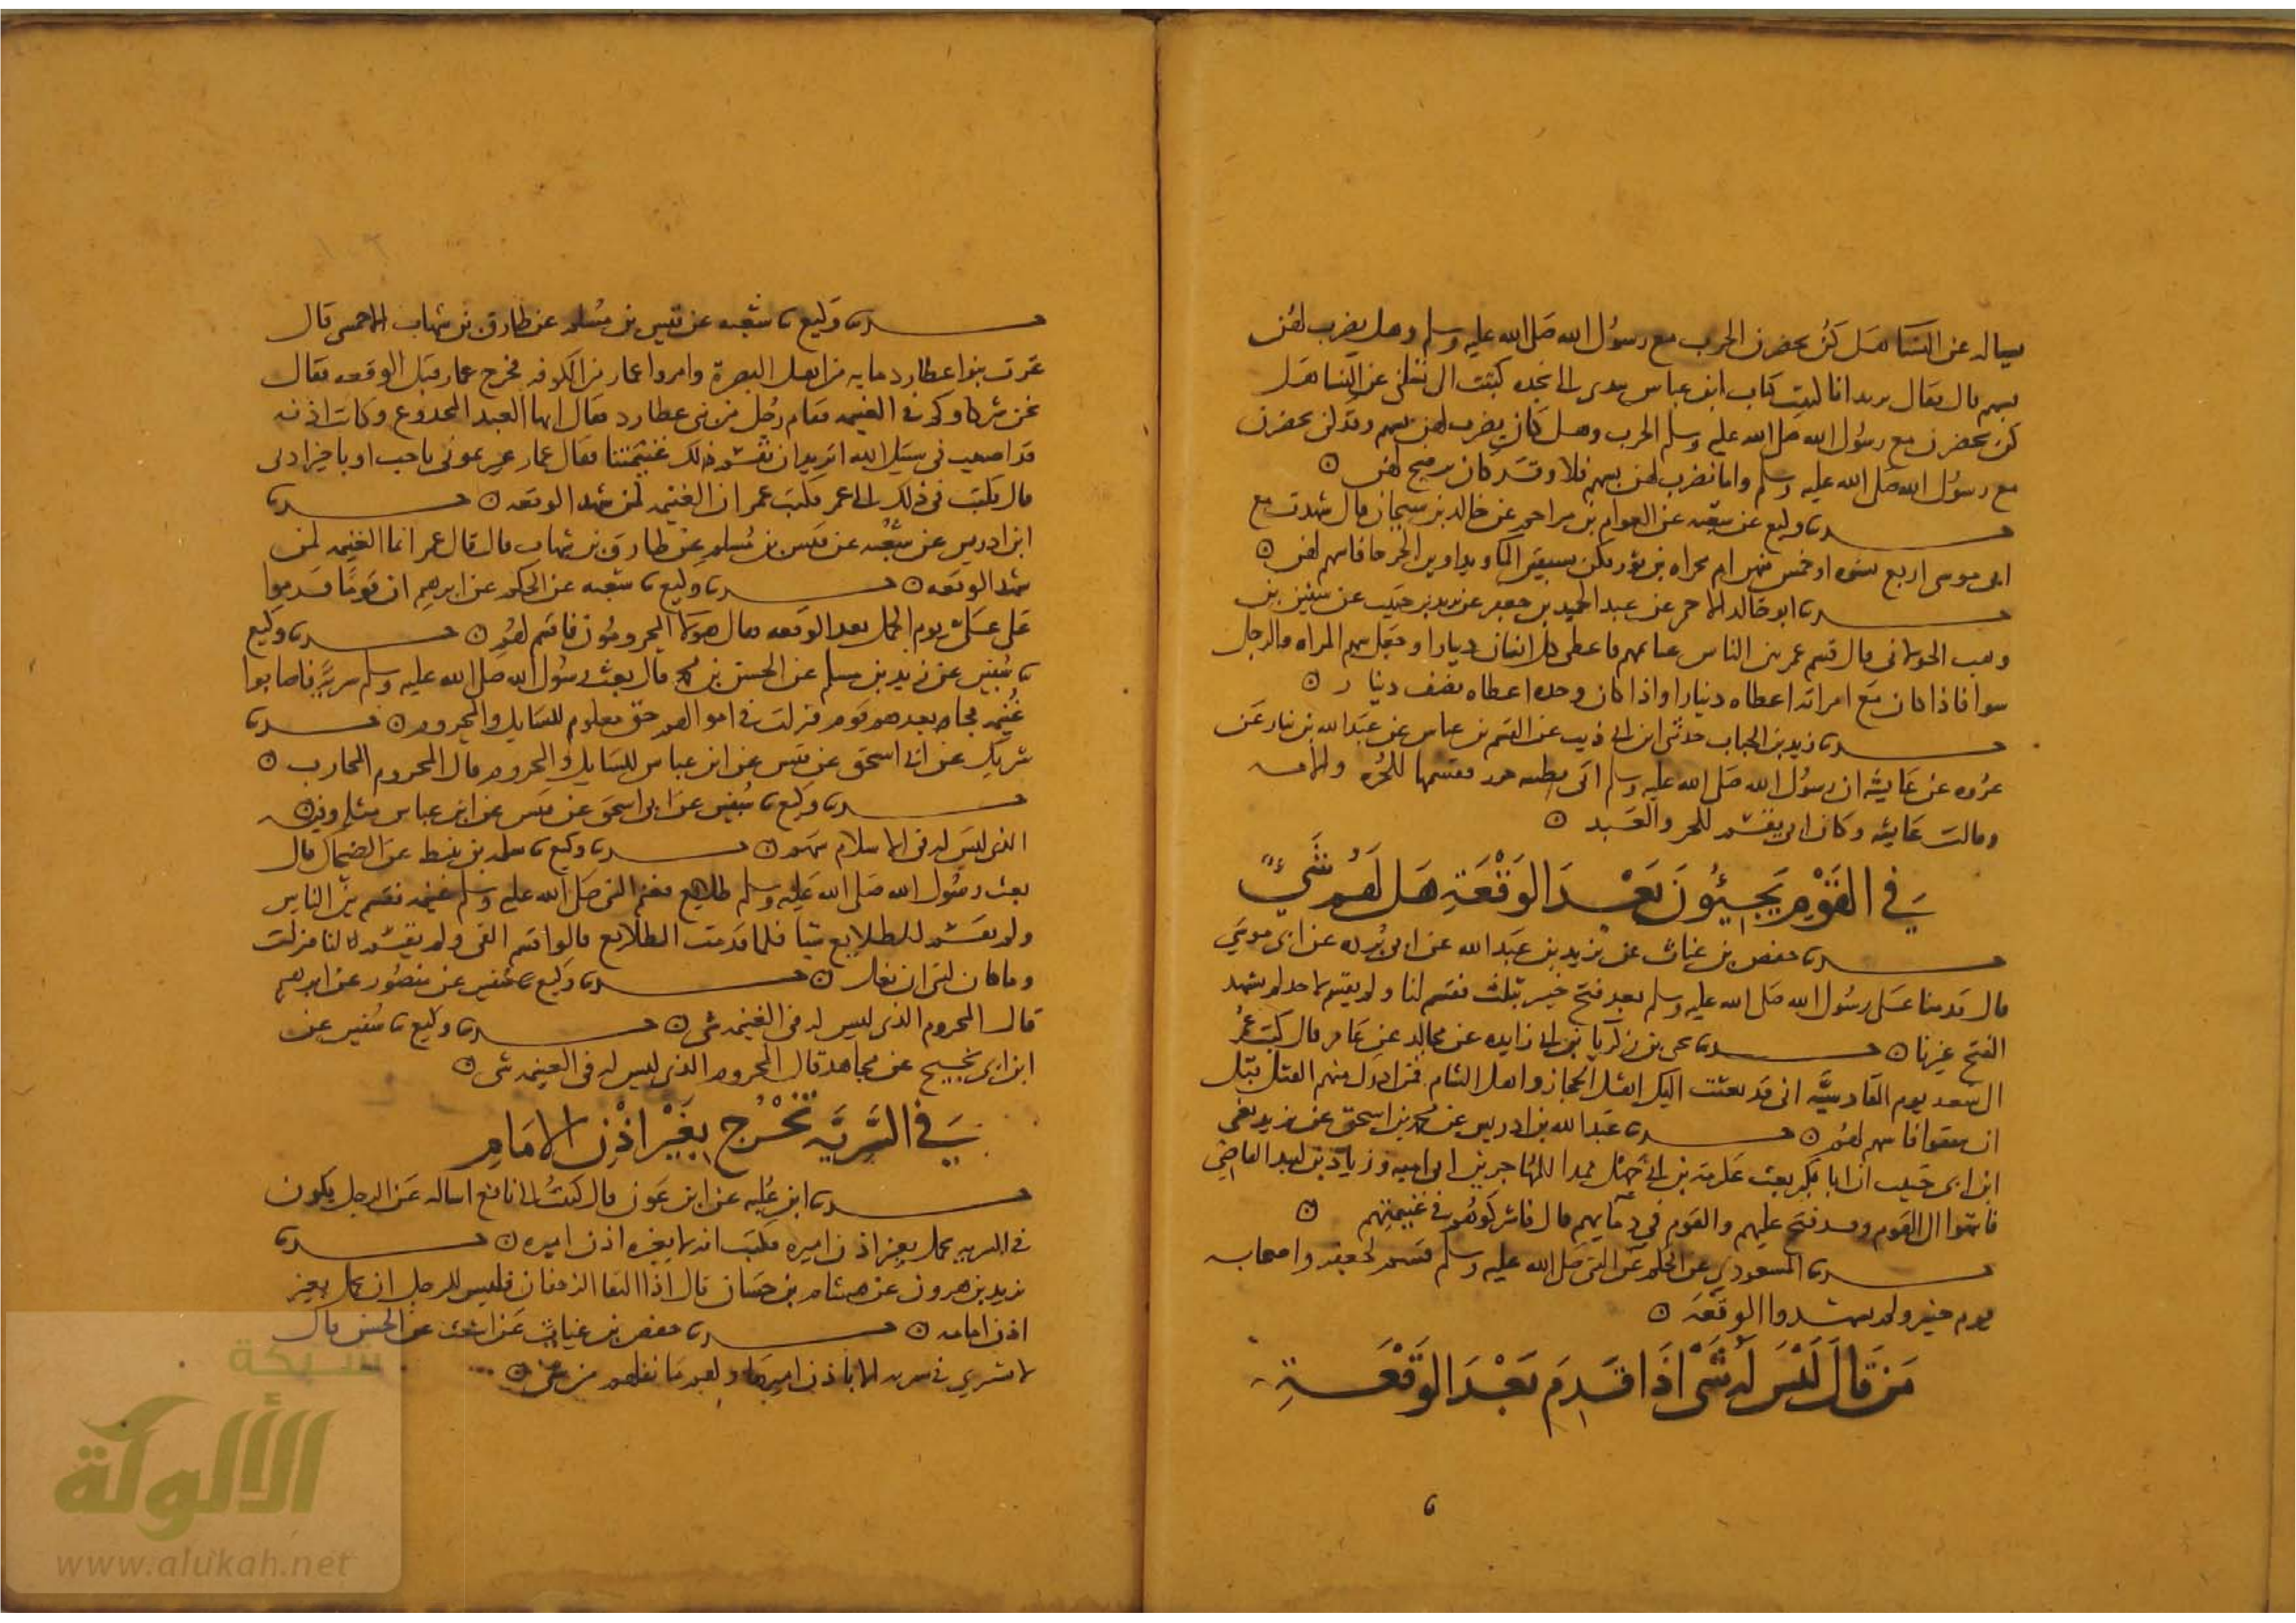 يساله عن النسا هل كن يحضرن الحرب مع رسول الله صلى الله عليه وسلم وهل يضرب لهن
بسهم قال فقال يزيد انا كتبت كتاب ابن عباس بيدي الى نجده كتبت الي تسلني عن النسا هل
كن يحضرن مع رسول الله صلى الله عليه وسلم الحرب وهل كان يضرب لهن بسهم وقد كن يحضرن
مع رسول الله صلى الله عليه وسلم واما نضرب لهن بسهم فلا وقد كان يرضخ لهن
حدثنا وكيع عن شعبه عن العوام بن مراجم عن خالد بن سيحان قال شهدت مع
ابى موسى اربع نسوه او خمس منهن ام مجزاه بن ثور فكن يسقين الما ويداوين الجرحا فاسهم لهن
حدثنا ابو خالد الاحمر عن عبد الحميد بن جعفر عن يزيد بن حبيب عن سفين بن
وهب الخولانى قال قسم عمر بين الناس غنائمهم فاعطى كل انسان دينارا وجعل سهم المراه والرجل
سوا فاذا كان مع امراته اعطاه دينارا واذا كان وحده اعطاه نصف دينار
حدثنا زيد بن الحباب حدثنى ابن ابى ذيب عن القسم بن عباس عن عبد الله بن نيار عن
عروه عن عايشه ان رسول الله صلى الله عليه وسلم اتى بظبيه خرز فقسمها للحره والامه
وقالت عايشه وكان ابى يقسم للحر والعبد
فى القوم يجيئون بعد الوقعة هل لهم شىء
حدثنا حفص بن غياث عن بريد بن عبد الله عن ابى برده عن ابى موسى
قال قدمنا على رسول الله صلى الله عليه وسلم بعد فتح خيبر بثلث فقسم لنا ولم يقسم لاحد لم يشهد
الفتح غيرنا حدثنا يحيى بن زكريا بن ابى زايده عن مجالد عن عامر قال كتب عمر
الى سعد يوم القادسية انى قد بعثت اليك اهل الحجاز واهل الشام فمن ادرك منهم القتل قبل
ان يتفقوا فاسهم لهم حدثنا عبد الله بن ادريس عن محمد بن اسحق عن يزيد يعنى
ابن ابى حبيب ان ابا بكر بعث عكرمة بن ابى جهل ممدا للمهاجر بن ابى اميه وزياد بن لبيد البياضي
فانتهوا الى القوم وقد فتح عليهم والقوم في دمايهم قال فاشركوهم فى غنيمتهم
حدثنا المسعودي عن الحكم عن النبى صلى الله عليه وسلم قسم لجعفر واصحابه
يوم خيبر ولم يشهدوا الوقعة
من قال ليس له شى اذا قدم بعد الوقعة
حدثنا وكيع نا شعبه عن قيس بن مسلم عن طارق بن شهاب الاحمسى قال
غزت بنوا عطارد مايه من اهل البصرة وامدوا عمار من الكوفه فخرج عمار قبل الوقعه فقال
نحن شركاوكم فى الغنيمه فقام رجل من بنى عطارد فقال ايها العبد المجدوع وكانت اذنه
قد اصيبت فى سبيل الله اتريد ان نقسم لك غنيمتنا فقال عمار عيرتمونى باحب او باخير اذني
قال فكتب فى ذلك الى عمر فكتب عمر ان الغنيمه لمن شهد الوقعه حدثنا
ابن ادريس عن شعبه عن قيس بن مسلم عن طارق بن شهاب قال قال عمر انما الغنيمه لمن
شهد الوقعه حدثنا وكيع نا شعبه عن الحكم عن ابرهيم ان قوما قدموا
على على يوم الجمل بعد الوقعه فقال هولا المحرومون فاقسم لهم حدثنا وكيع
نا سفين عن زيد بن مسلم عن الحسن بن محمد قال بعث رسول الله صلى الله عليه وسلم سرية فاصابوا
غنيمه فجا بعدهم قوم فنزلت فى اموالهم حق معلوم للسايل والمحروم حدثنا
شريك عن ابى اسحق عن قيس عن ابن عباس للسايل والمحروم قال المحروم المحارب
حدثنا وكيع نا سفين عن ابى اسحق عن قيس عن ابن عباس مثله وزاد فيه
الذى ليس له فى الاسلام سهم حدثنا وكيع نا سلمه بن نبيط عن الضحاك قال
بعث رسول الله صلى الله عليه وسلم طلايع فغنم النبى صلى الله عليه وسلم غنيمه فقسم بين الناس
ولم يقسم للطلايع شيا فلما قدمت الطلايع قالوا قسم الفى ولم يقسم لنا فنزلت
وما كان لنبى ان يغل حدثنا وكيع نا سفين عن منصور عن ابرهيم
قال المحروم الذى ليس له فى الغنيمه شى حدثنا وكيع نا سفين عن
ابن ابى نجيح عن مجاهد قال المحروم الذى ليس له فى الغنيمه شى
فى السرية تخرج بغير اذن الامام
حدثنا ابن عليه عن ابن عون قال كتبت الى نافع اساله عن الرجل يكون
فى السريه يحمل بغير اذن اميره فكتب انه لا يجزه اذن اميره حدثنا
يزيد بن هرون عن هشام بن حسان قال اذا التقا الزحفان فليس للرجل ان يحمل بغير
اذن امامه حدثنا حفص بن غياث عن اشعث عن الحسن قال
لا تسري فى سريه الا باذن اميرها ولهم ما نفلهم من شى
شبكة
الألوكة
www.alukah.net